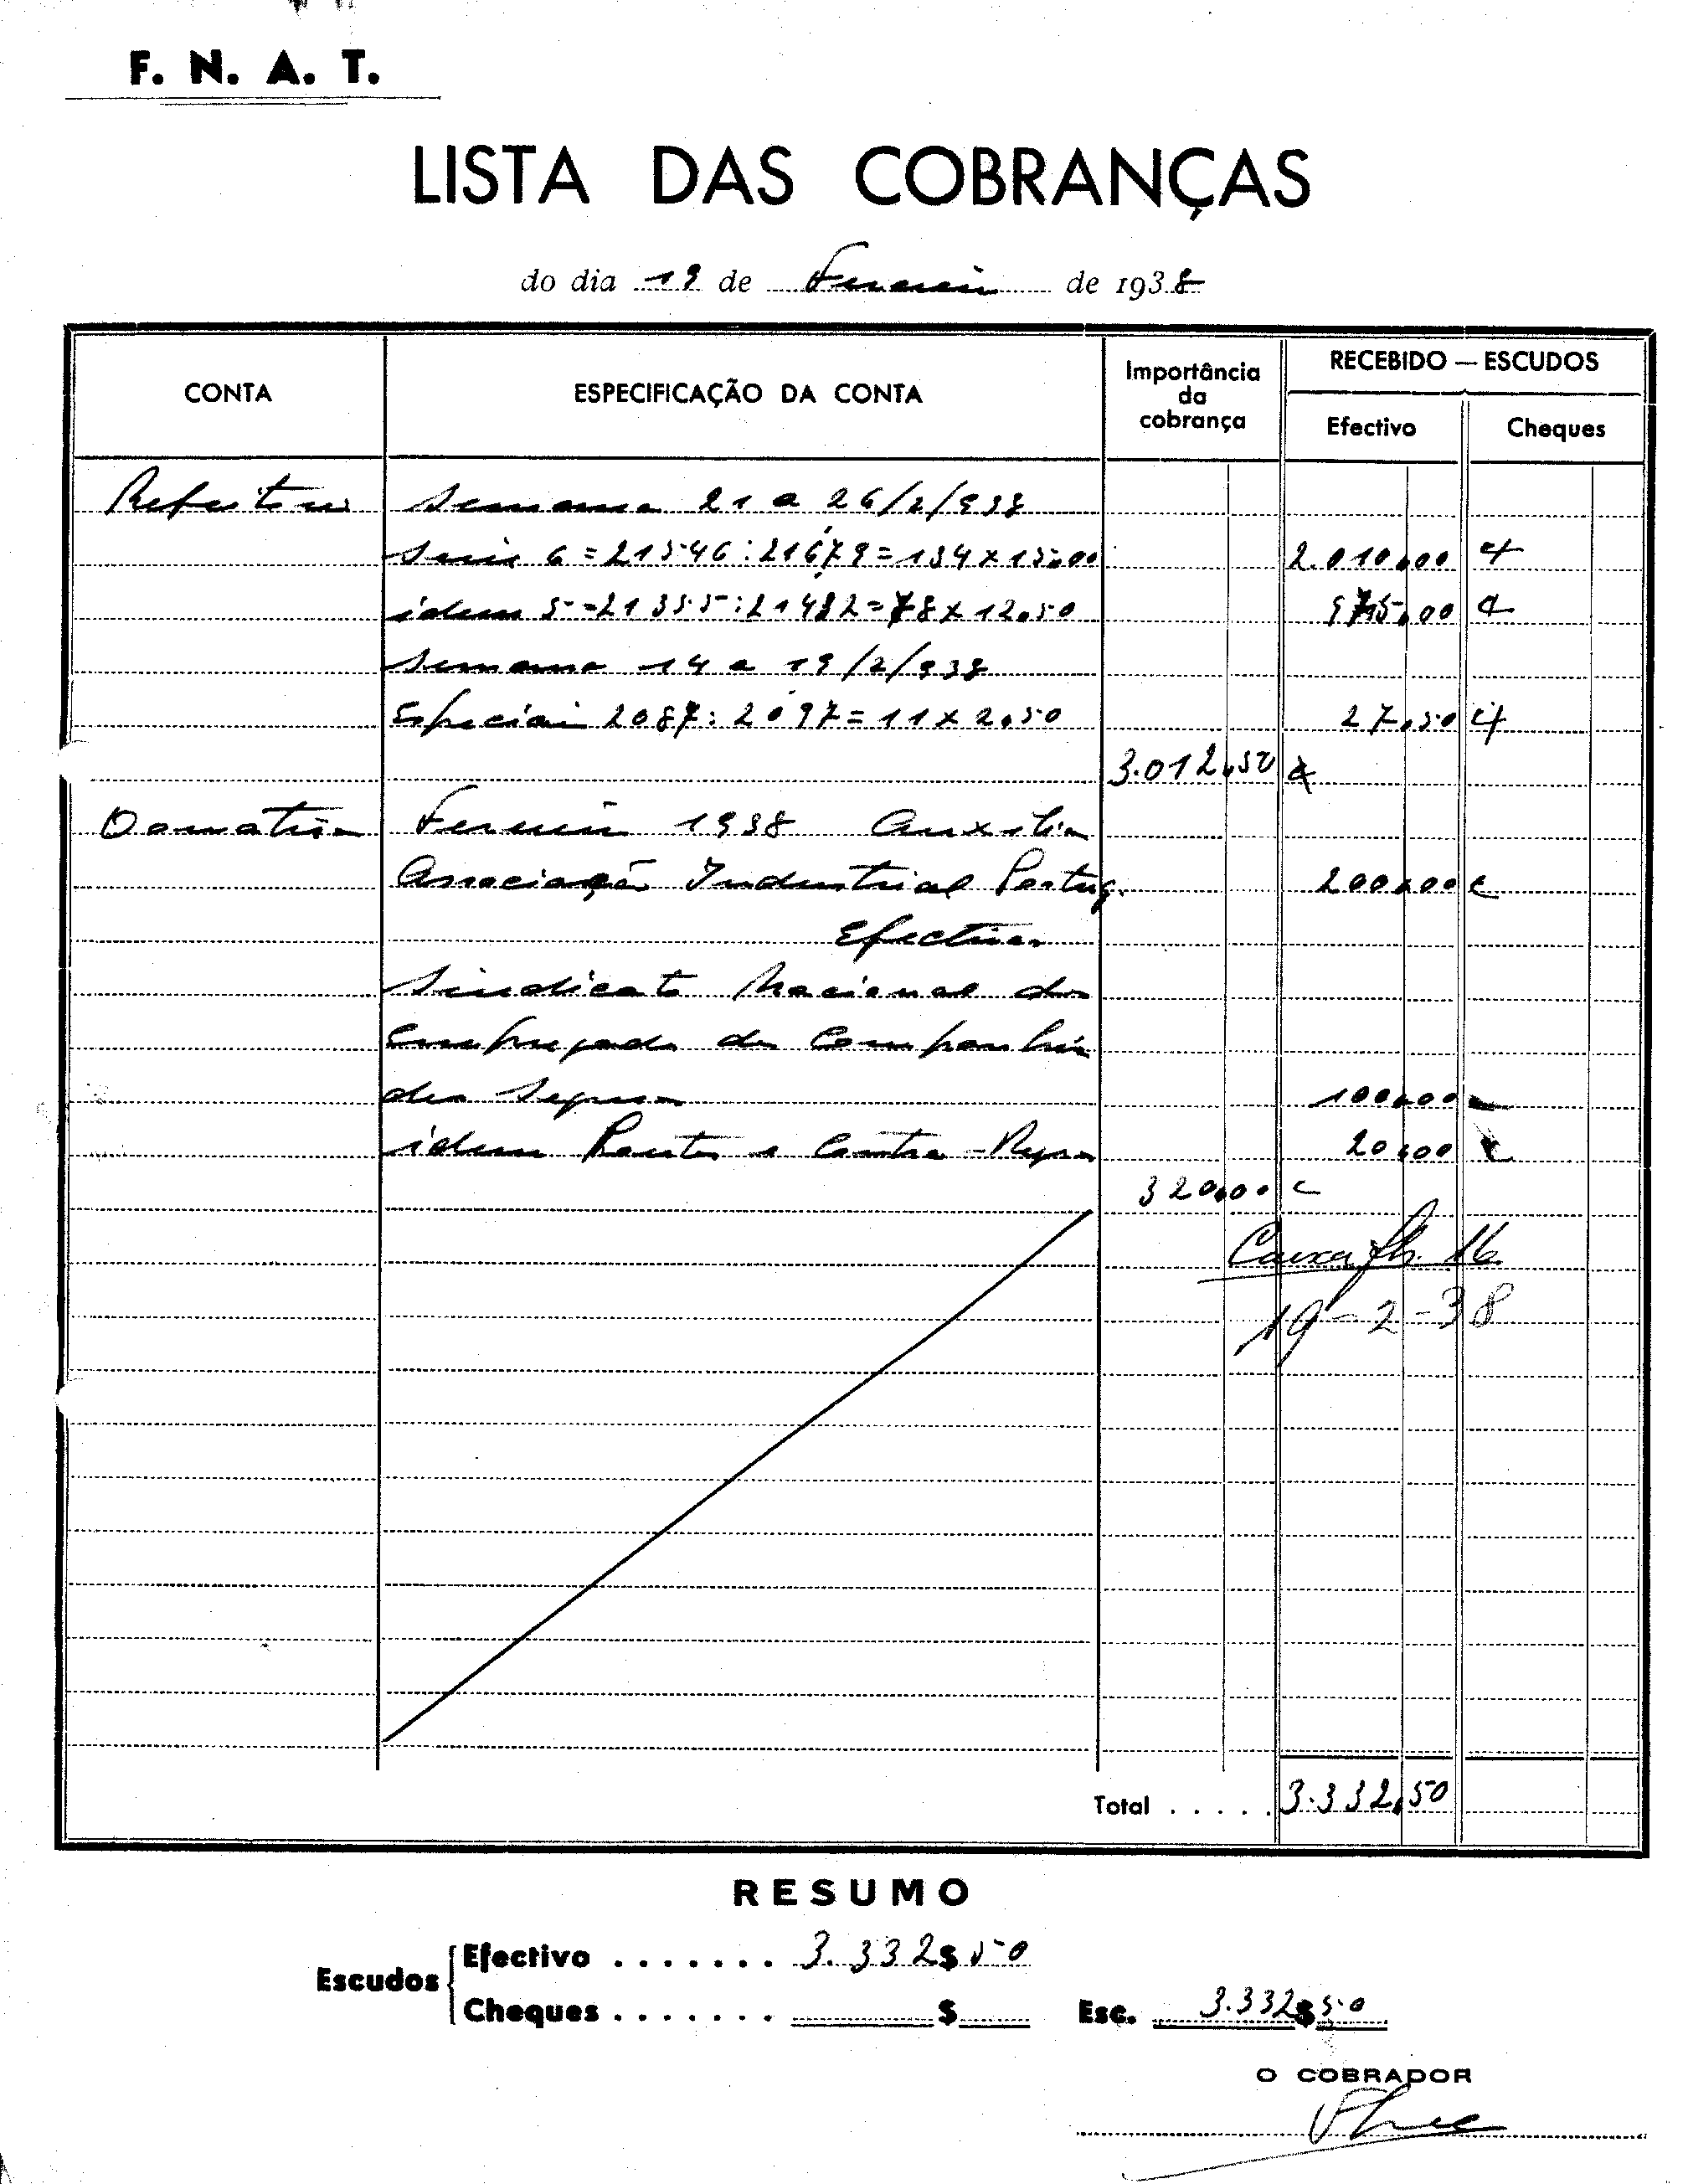 F. N. A. T.
LISTA DAS COBRANÇAS
do dia 19 de Fevereiro de 1938
CONTA ESPECIFICAÇÃO DA CONTA Importância da cobrança RECEBIDO — ESCUDOS
Efectivo Cheques
Refeitorio Semana 21 a 26/2/938
Serie 6 = 21546 : 21679 = 134 x 15,00 2.010,00
idem 5 = 21355 : 21432 = 78 x 12,50 975,00
Semana 14 a 19/2/938
Especiais 2087 : 2097 = 11 x 2,50 27,50
3.012,50
Donativos Fevereiro 1938 Auxiliar
Associação Industrial Portug. 200,00
Efectivos
Sindicato Nacional dos
Empregados de Companhias
de Seguros 100,00
idem 20,00
320,00
Caixa fls. 16
19-2-38
Total . . . . . 3.332,50
RESUMO
Escudos Efectivo . . . . . . . 3.332$50
Cheques . . . . . . . $ Esc. 3.332$50
O COBRADOR